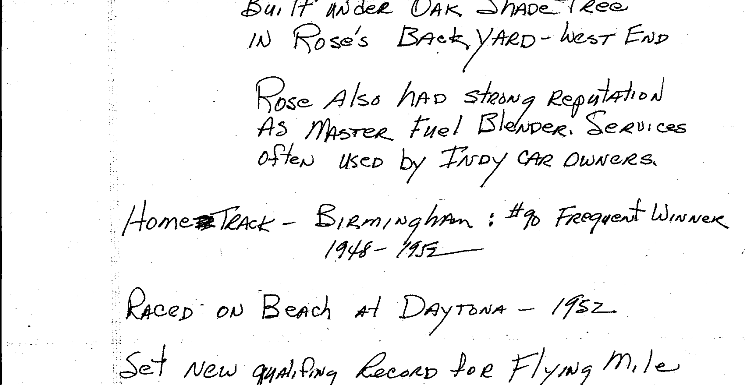 Built under Oak Shade Tree
in Rose's Backyard - West End
Rose Also had strong Reputation
As Master Fuel Blender. Services
often used by Indy Car Owners.
Home Track - Birmingham : #90 Frequent Winner
1948 - 1952
Raced on Beach at Daytona - 1952
Set New qualifing Record for Flying Mile